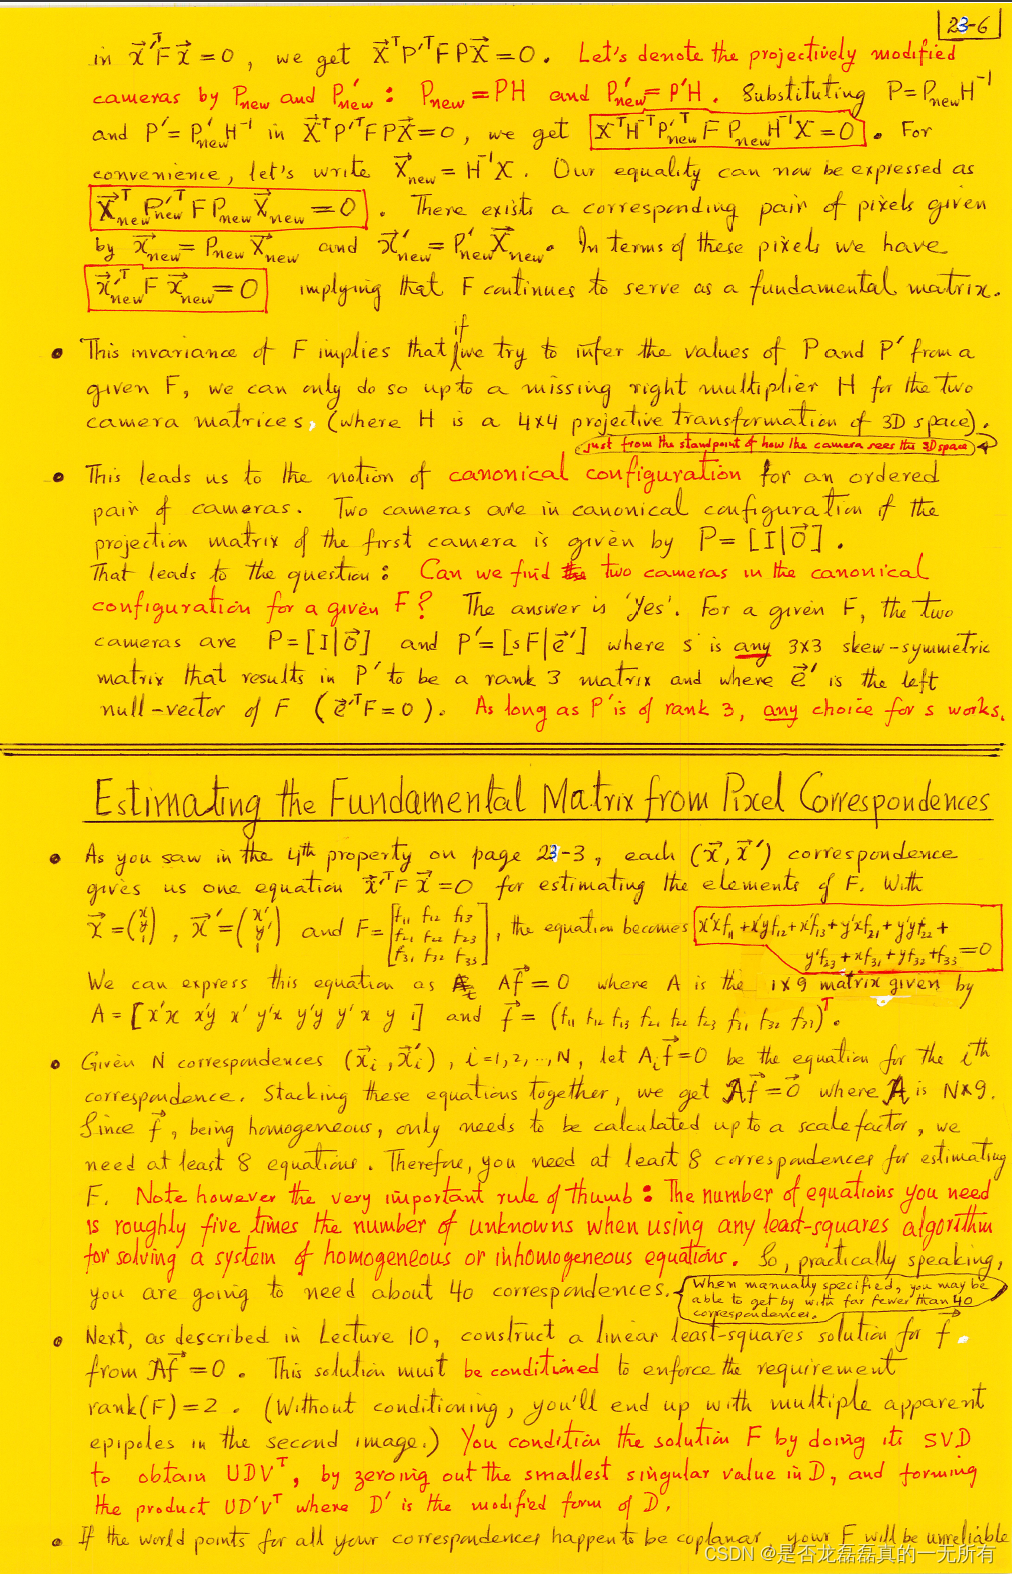 23-6
in x⃗'ᵀF x⃗ = 0 , we get X⃗ᵀP'ᵀF P X⃗ = 0 . Let's denote the projectively modified
cameras by P_new and P'_new : P_new = PH and P'_new = P'H . Substituting P = P_new H⁻¹
and P' = P'_new H⁻¹ in X⃗ᵀP'ᵀFPX⃗ = 0 , we get X⁻ᵀH⁻ᵀP'ᵀ_new F P_new H⁻¹X = 0 . For
convenience, let's write X⃗_new = H⁻¹X . Our equality can now be expressed as
X⃗ᵀ_new P'ᵀ_new F P_new X⃗_new = 0 . There exists a corresponding pair of pixels given
by x⃗_new = P_new X⃗_new and x⃗'_new = P'_new X⃗_new . In terms of these pixels we have
x⃗'ᵀ_new F x⃗_new = 0 implying that F continues to serve as a fundamental matrix.
• This invariance of F implies that if we try to infer the values of P and P' from a
given F, we can only do so up to a missing right multiplier H for the two
camera matrices, (where H is a 4x4 projective transformation of 3D space).
just from the standpoint of how the camera sees the 3D space
• This leads us to the notion of canonical configuration for an ordered
pair of cameras. Two cameras are in canonical configuration if the
projection matrix of the first camera is given by P = [I|0⃗] .
That leads to the question : Can we find two cameras in the canonical
configuration for a given F? The answer is 'Yes'. For a given F, the two
cameras are P = [I|0⃗] and P' = [sF|e⃗'] where s is any 3x3 skew-symmetric
matrix that results in P' to be a rank 3 matrix and where e⃗' is the left
null-vector of F ( e⃗'ᵀF = 0 ). As long as P' is of rank 3, any choice for s works.
Estimating the Fundamental Matrix from Pixel Correspondences
• As you saw in the 4th property on page 23-3, each (x⃗, x⃗') correspondence
gives us one equation x⃗'ᵀF x⃗ = 0 for estimating the elements of F. With
x⃗ = (x y 1) , x⃗' = (x' y' 1) and F = [f11 f12 f13 f21 f22 f23 f31 f32 f33] , the equation becomes x'xf11 + x'yf12 + x'f13 + y'xf21 + y'yf22 +
y'f23 + xf31 + yf32 + f33 = 0
We can express this equation as A f⃗ = 0 where A is the 1x9 matrix given by
A = [x'x x'y x' y'x y'y y' x y 1] and f⃗ = (f11 f12 f13 f21 f22 f23 f31 f32 f33)ᵀ .
• Given N correspondences (x⃗i , x⃗'i) , i=1,2,..,N, let Ai f⃗ = 0 be the equation for the ith
correspondence. Stacking these equations together, we get A f⃗ = 0⃗ where A is Nx9.
Since f⃗, being homogeneous, only needs to be calculated up to a scale factor, we
need at least 8 equations. Therefore, you need at least 8 correspondences for estimating
F. Note however the very important rule of thumb : The number of equations you need
is roughly five times the number of unknowns when using any least-squares algorithm
for solving a system of homogeneous or inhomogeneous equations. So, practically speaking,
you are going to need about 40 correspondences.
When manually specified, you may be
able to get by with far fewer than 40
correspondences.
• Next, as described in Lecture 10, construct a linear least-squares solution for f⃗
from A f⃗ = 0 . This solution must be conditioned to enforce the requirement
rank(F) = 2 . (Without conditioning, you'll end up with multiple apparent
epipoles in the second image.) You condition the solution F by doing its SVD
to obtain UDVᵀ, by zeroing out the smallest singular value in D, and forming
the product UD'Vᵀ where D' is the modified form of D.
• If the world points for all your correspondences happen to be coplanar, your F will be unreliable
CSDN @是否龙磊磊真的一无所有